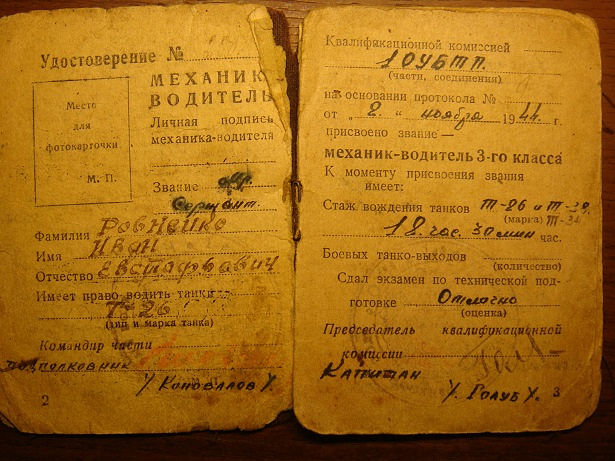 Удостоверение №
МЕХАНИК-
ВОДИТЕЛЬ
Место
для
фотокарточки
М. П.
Личная подпись
механика-водителя
Звание
Сержант.
Фамилия Ровнейко
Имя Иван
Отчество Евстафьевич
Имеет право водить танки
Т-26
(тип и марка танка)
Командир части
подполковник
/ Коновалов /
2
Квалификационной комиссией
1 ОУБТП.
(части, соединения)
на основании протокола №
от „ 2 " ноября 1944 г.
присвоено звание —
механик-водитель 3-го класса
К моменту присвоения звания
имеет:
Стаж вождения танков Т-26 и
(марка) Т-34
18 час. 30 мин час.
Боевых танко-выходов
(количество)
Сдал экзамен по технической под-
готовке Отлично
(оценка)
Председатель квалификационной
комиссии
Капитан
/ Голуб /
3